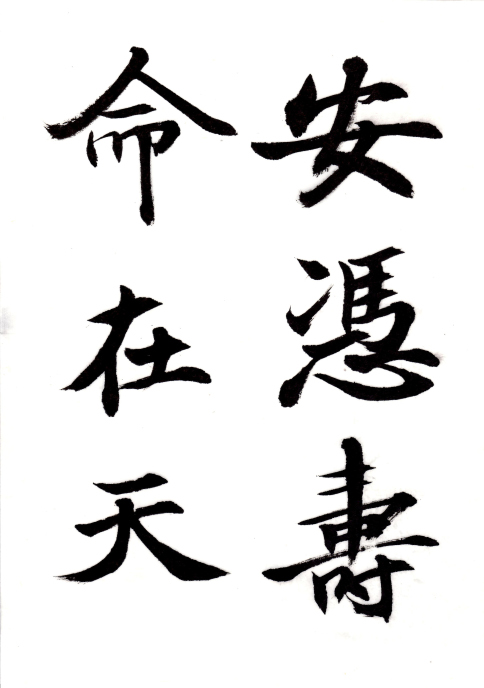 安憑壽
命在天